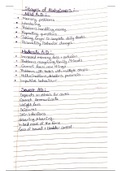 Stages of Alzheimer's :-
Mild A.D :-
• Memory problems
• Wandering
• Problems handling money
• Repeating questions
• Taking longer to complete daily tasks
• Personality & behavior changes
Moderate A.D :-
• Increased memory loss & confusion
• Problems recognizing family & friends
• Cannot learn new things
• Problems with tasks with multiple steps
• Hallucinations, delusions, paranoia
• Impulsive behaviour
Severe AD :-
• Depends on others for care
• Cannot communicate
• Weight loss
• Seizures
• Skin infections
• Groaning, Moaning
• In bed most of the time
• Loss of bowel & bladder control